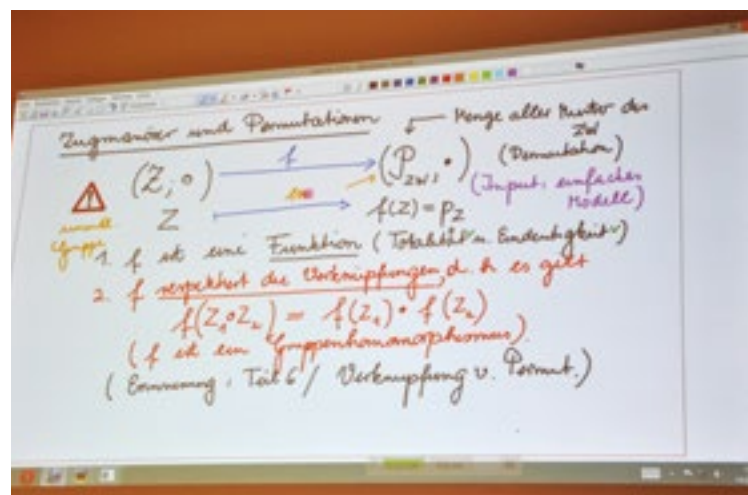 Zugmanöver und Permutationen
Menge aller Muster des
ZW
(Z, ∘) f (P_ZW, •) (Permutation)
(Input: einfaches
Modell)
Z f(Z) = p_Z
Gruppe
1. f ist eine Funktion (Totalität u. Eindeutigkeit)
2. f respektiert die Verknüpfungen, d. h es gilt
f(Z₁∘Z₂) = f(Z₁) • f(Z₂)
(f ist ein Gruppenhomomorphismus).
(Erinnerung: Teil 6 / Verknüpfung v. Permut.)